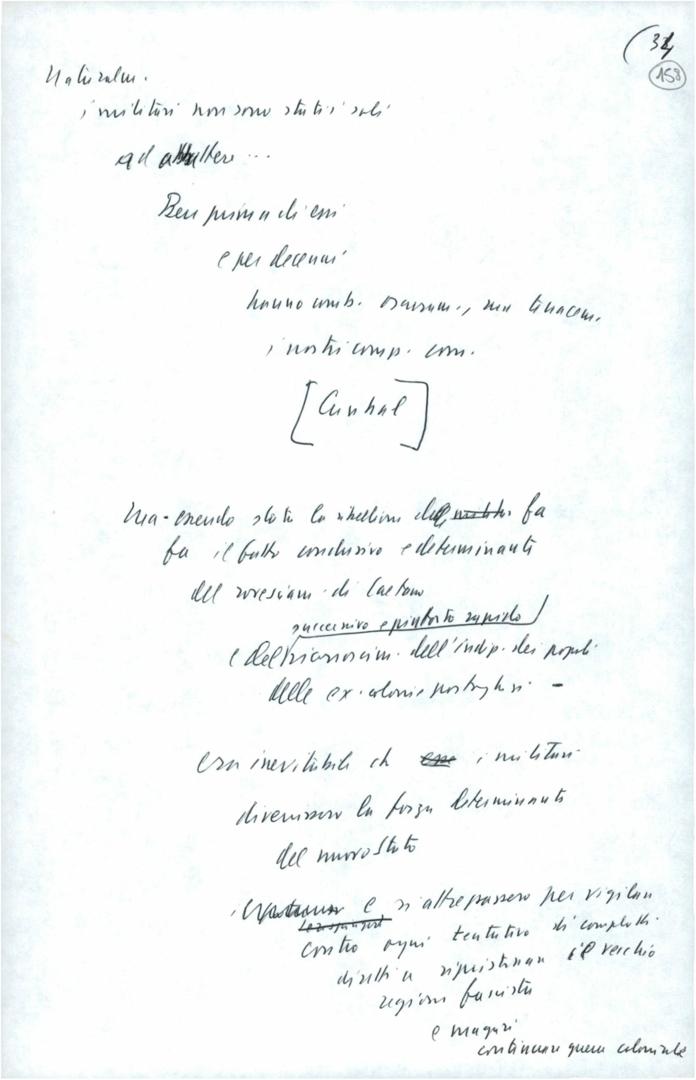 (34
158
Naturalm.
i militari non sono stati i soli
ad abbattere ...
Ben prima di essi
e per decenni
hanno comb. oscuram., ma tenacem.
i nostri comp. com.
[Cunhal]
Ma - essendo stata la ribellione dei militari fa
fu il fatto conclusivo e determinante
del rovesciam. di Caetano
successivo e piuttosto rapido
e del riconoscim. dell'indip. dei popoli
delle ex-colonie portoghesi -
era inevitabile che i militari
divenissero la forza determinante
del nuovo Stato
e si attrezzassero per vigilare
contro ogni tentativo di complotti
diretti a ripristinare il vecchio
regime fascista
e magari
continuare guerra coloniale